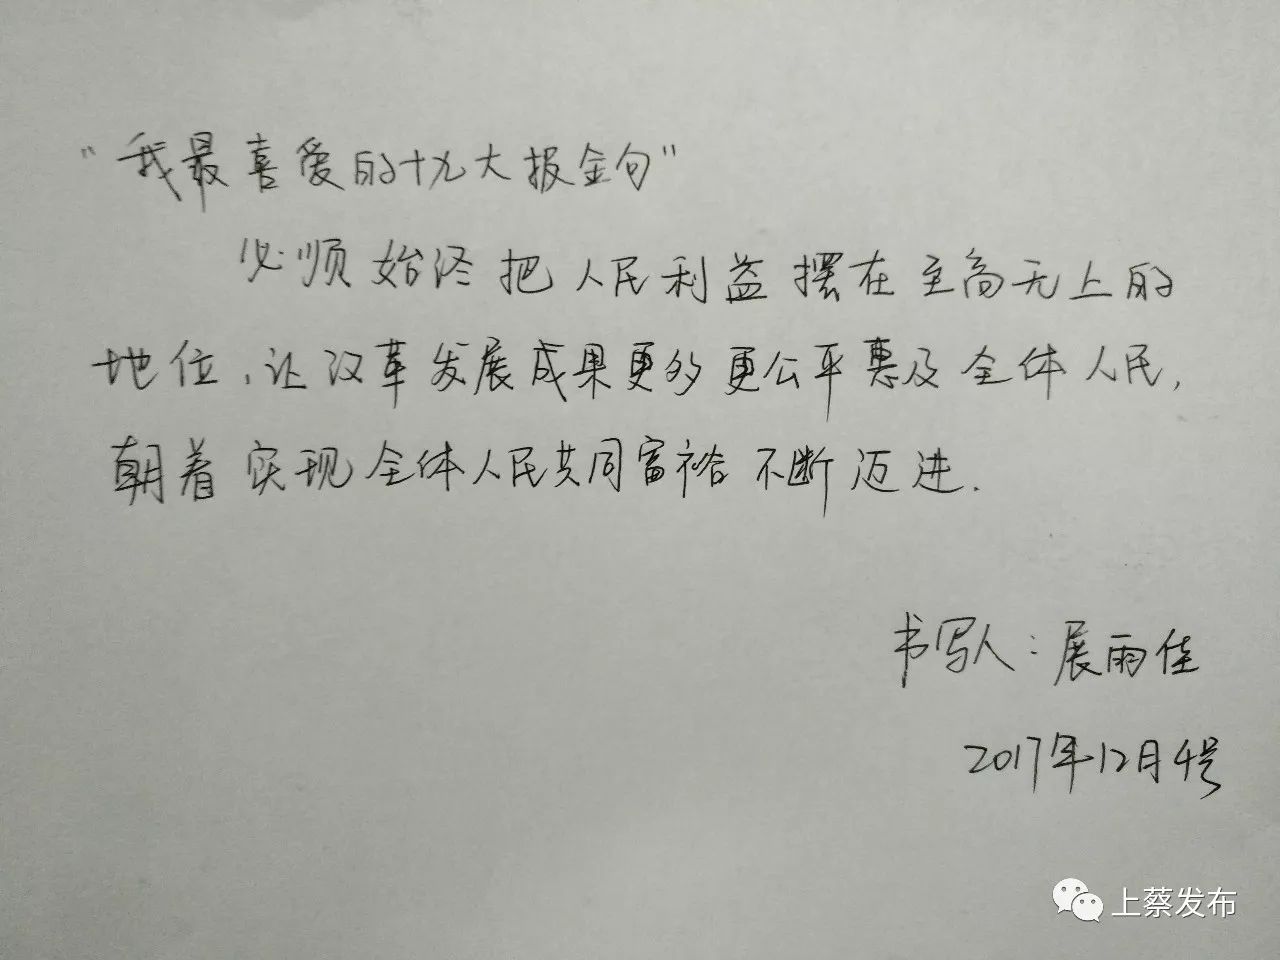 “我最喜爱的十九大报金句”
必须始终把人民利益摆在至高无上的
地位,让改革发展成果更多更公平惠及全体人民,
朝着实现全体人民共同富裕不断迈进.
书写人:展雨佳
2017年12月4号
上蔡发布